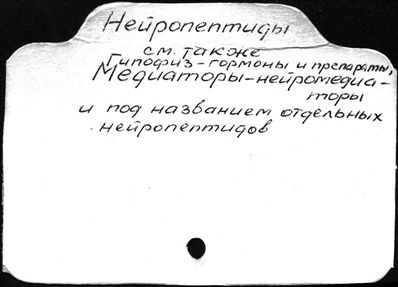 Нейропептиды
см. также
Гипофиз-гормоны и препараты,
Медиаторы-нейромедиа-
торы
и под названием отдельных
нейропептидов